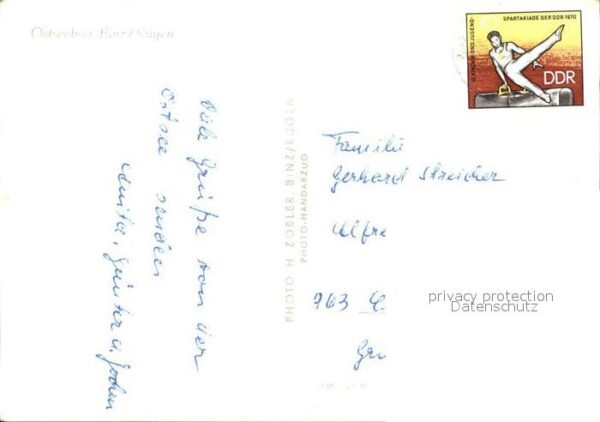 Ostseebad Binz / Rügen
Viele Grüße von der
Ostsee senden
Anita, Günter u. Jochen
PHOTO H. ZOBLER BINZ/RÜGEN
PHOTO-HANDABZUG
KINDER- UND JUGEND-
SPARTAKIADE DER DDR 1970
10
DDR
Familie
Gerhard Streicher
Alfre
763
Gr
privacy protection
Datenschutz